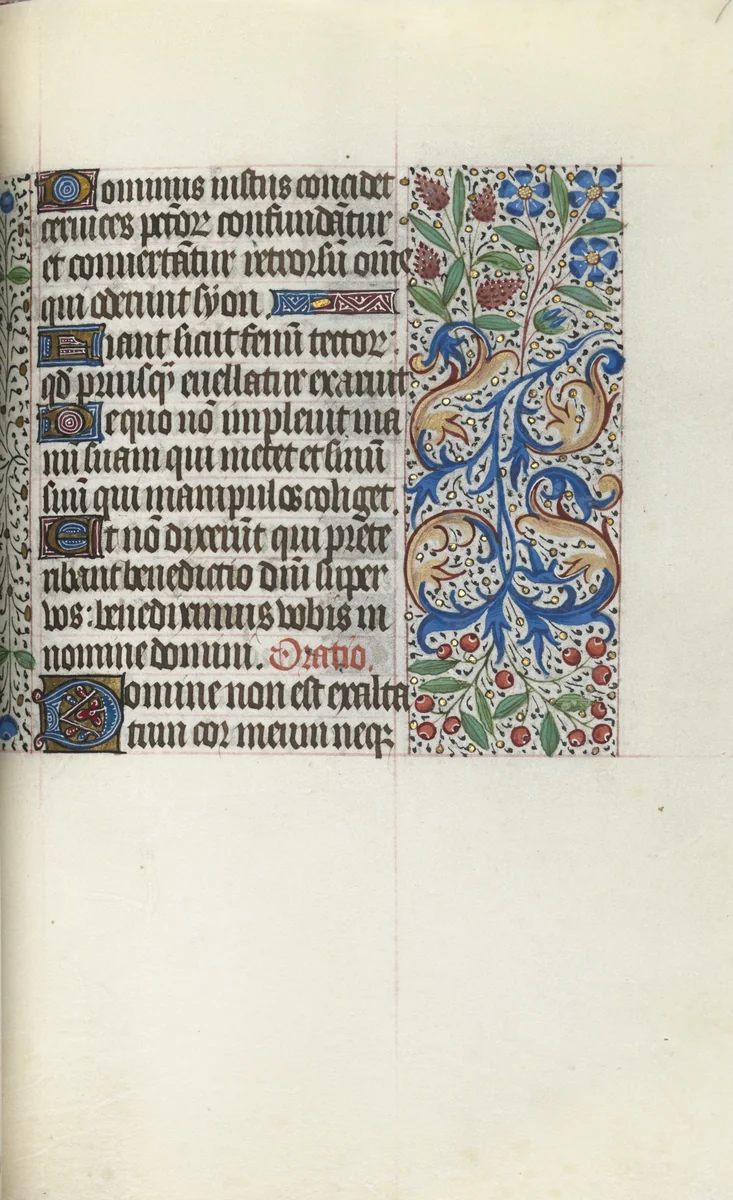 Dominus iustus concidet
ceruices pctoꝝ confundātur
et conuertātur retrorsū om̄e
qui oderunt syon.
Fiant sicut fenū tectoꝝ:
qd̄ priusq̄ euellatur exaruit
De quo nō impleuit ma
nū suam qui metet et sinū
suū qui manipulos coliget.
Et nō dixerūt qui prēte
ribant benedictio dn̄i super
vos: benediximus vobis in
nomine domini. Oratio.
Domine non est exalta
tum cor meum neqꝫ